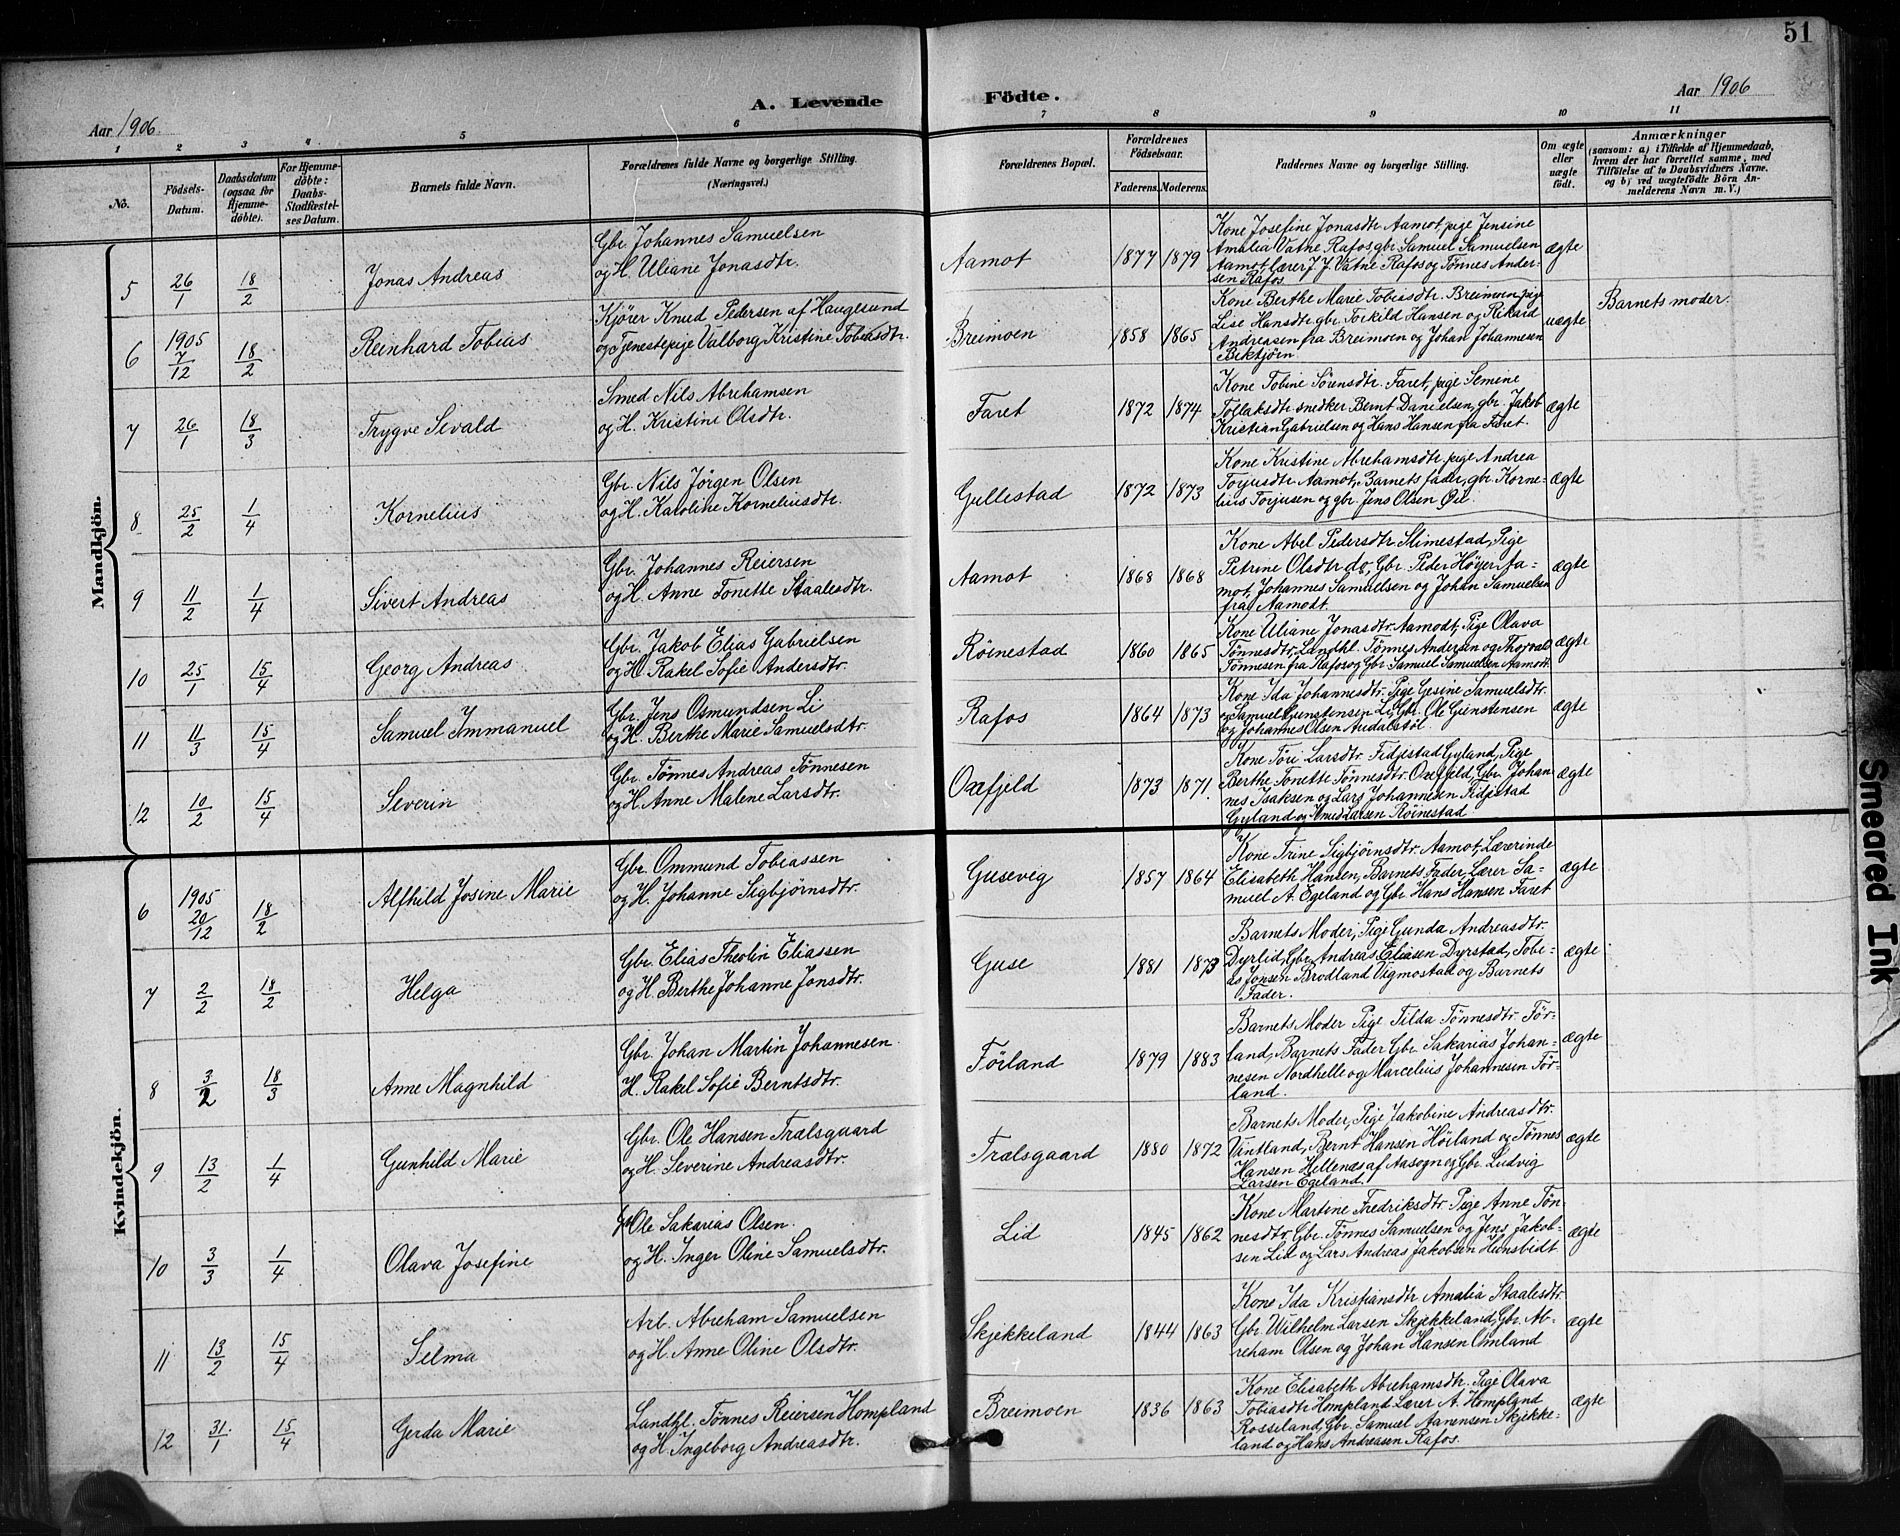 51
Aar 1906.
A. Levende Födte.
Aar 1906
1 2 3 4 5 6 7 8 9 10 11
No.
Födsels-Datum.
Daabsdatum (ogsaa for Hjemme-döbte).
For Hjemme-döbte: Daabs-Stadfæstel-ses Datum.
Barnets fulde Navn.
Forældrenes fulde Navne og borgerlige Stilling. (Næringsvei.)
Forældrenes Bopæl.
Forældrenes Födselsaar.
Faderens. Moderens.
Faddernes Navne og borgerlige Stilling.
Om ægte eller uægte födt.
Anmærkninger
(saasom: a) i Tilfælde af Hjemmedaab, hvem der har forrettet samme, med Tilföielse af to Daabsvidners Navne, og b) ved uægtefödte Börn An-melderens Navn m. V.)
Mandkjön.
5 26/1 18/2 Jonas Andreas
Gbr. Johannes Samuelsen
og H. Uliane Jonasdtr.
Aamot 1877 1879
Kone Josefine Jonasdtr Aamot, pige Jensine
Amalia Vatne Rafos, gbr. Samuel Samuelsen
Aamot, lærer J. J. Vatne Rafos og Tönnes Ander-
sen Rafos.
ægte
6 1905 7/12 18/2 Reinhard Tobias
Kjörer Knud Pedersen af Haugesund
og Tjenestepige Valborg Kristine Tobiasdtr.
Breimoen 1858 1865
Kone Berthe Marie Tobiasdtr. Breimoen, pige
Lise Hansdtr. gbr. Torkild Hansen og Rikard
Andreasen fra Breimoen og Johan Johannesen
uægte
Barnets moder.
7 26/1 18/3 Trygve Sevald
Smed Nils Abrehamsen
og H. Kristine Olsdtr.
Faret 1872 1874
Kone Tobine Sörensdtr. Faret, pige Semine
Tollaksdtr snedker Bernt Danielsen, gbr. Jakob
Kristian Gabrielsen og Hans Hansen fra Faret.
ægte
8 25/2 1/4 Kornelius
Gbr. Nils Jörgen Olsen
og H. Karoline Korneliusdtr.
Gullestad 1872 1873
Kone Kristine Abrehamsdtr. pige Andrea
Torjusdtr Aamot, Barnets fader, gbr. Korne-
lius Torjusen og gbr. Jens Olsen Öie.
ægte
9 11/2 1/4 Sivert Andreas
Gbr. Johannes Reiersen
og H. Anne Tonette Staalesdtr.
Aamot 1868 1868
Kone Abel Pedersdtr Slimestad, Pige
Petrine Olsdtr do, Gbr. Peder Höyer Aa-
mot, Johannes Samuelsen og Johan Samuelsen
fra Aamodt.
ægte
10 25/1 15/4 Georg Andreas
Gbr. Jakob Elias Gabrielsen
og H. Rakel Sofie Andersdtr.
Röinestad 1860 1865
Kone Uliane Jonasdtr. Aamodt, Pige Olava
Tönnesdtr, Landhl. Tönnes Andersen og Thorvald
Tönnesen fra Rafos og Gbr. Samuel Samuelsen Aamodt
ægte
11 11/3 15/4 Samuel Immanuel
Gbr. Jens Osmundsen Li
og H. Berthe Marie Samuelsdtr.
Rafos 1864 1873
Kone Ida Johannesdtr. Pige Gesine Samuelsdtr.
og Samuel Gunstensen Li, Gbr. Ole Gunstensen
og Johannes Olsen Aredalstöl.
ægte
12 10/2 15/4 Severin
Gbr. Tönnes Andreas Tönnesen
og H. Anne Malene Larsdtr.
Oxefjeld 1873 1871.
Kone Töri Larsdtr. Fidjestad Gyland, Pige
Berthe Tonette Tönnesdtr. Oxefjeld, Gbr. Johan
nes Isaksen og Lars Johannesen Fidjestad
Gyland og Knud Larsen Röinestad
ægte
Kvindekjön.
6 1905 20/12 18/2 Alfhild Josine Marie
Gbr. Ommund Tobiassen
og H. Johanne Sigbjörnsdtr.
Gusevig 1857 1864
Kone Trine Sigbjörnsdtr. Aamot, Lærerinde
Elisabeth Hansen, Barnets Fader, Lærer Sa-
muel A. Egeland og Gbr. Hans Hansen Faret
ægte
7 2/2 18/2 Helga
Gbr. Elias Theolin Eliassen
og H. Berthe Johanne Jonsdtr.
Guse 1881 1873
Barnets Moder, Pige Gunda Andreasdtr.
Dyrlid, Gbr. Andreas Eliasen Dyrstad, Tobi-
as Jonsen Brodland Vigmostad og Barnets
Fader.
ægte
8 3/2 18/3 Anne Magnhild
Gbr. Johan Martin Johannesen
H. Rakel Sofie Berntsdtr.
Föiland 1879 1883
Barnets Moder Pige Tilda Tönnesdtr. För-
land, Barnets Fader Gbr. Sakarias Johan-
nesen Nordhelle og Marcelius Johannesen För-
land.
ægte
9 13/2 1/4 Gunhild Marie
Gbr. Ole Hansen Trælsgaard
og H. Severine Andreasdtr.
Trælsgaard 1880 1872
Barnets Moder, Pige Jakobine Andreasdtr.
Vintland, Bernt Hansen Höiland og Tönnes
Hansen Hellenes af Aasogn og Gbr. Ludvig
Larsen Egeland.
ægte
10 3/3 1/4 Olava Josefine
Gbr Ole Sakarias Olsen.
og H. Inger Oline Samuelsdtr.
Lid 1845 1862
Kone Martine Fredriksdtr. Pige Anne Tön-
nesdtr. Gbr. Tönnes Samuelsen og Jens Jakob-
sen Lid og Lars Andreas Jakobsen Hunsbidt
ægte
11 13/2 15/4 Selma
Arb. Abreham Samuelsen
og H. Anne Oline Olsdtr.
Skjekkeland 1844 1863
Kone Ida Kristiansdtr Amalia Staalesdtr.
Gbr. Wilhelm Larsen Skjekkeland, Gbr. Ab-
reham Olsen og Johan Hansen Omland
ægte
12 31/1 15/4 Gerda Marie
Landhl. Tönnes Reiersen Hompland
og H. Ingeborg Andreasdtr.
Breimoen 1836 1863
Kone Elisabeth Abrehamsdtr. Pige Olava
Tobiasdtr Hompland Lærer A. Hompland
Rosseland, Gbr. Samuel Aanensen Skjekke-
land og Hans Andreasen Rafos.
ægte
Smeared Ink